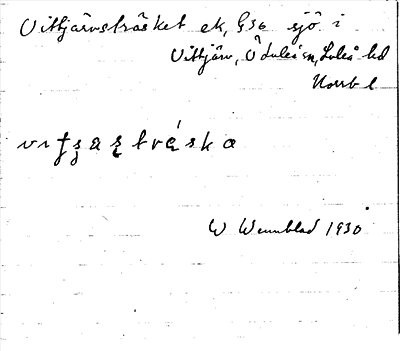 Vittjärvsträsket ek, G36 sjö i
Vittjärv, Ö Luleå sn, Luleå hd
Norrb l
W Wennblad 1930